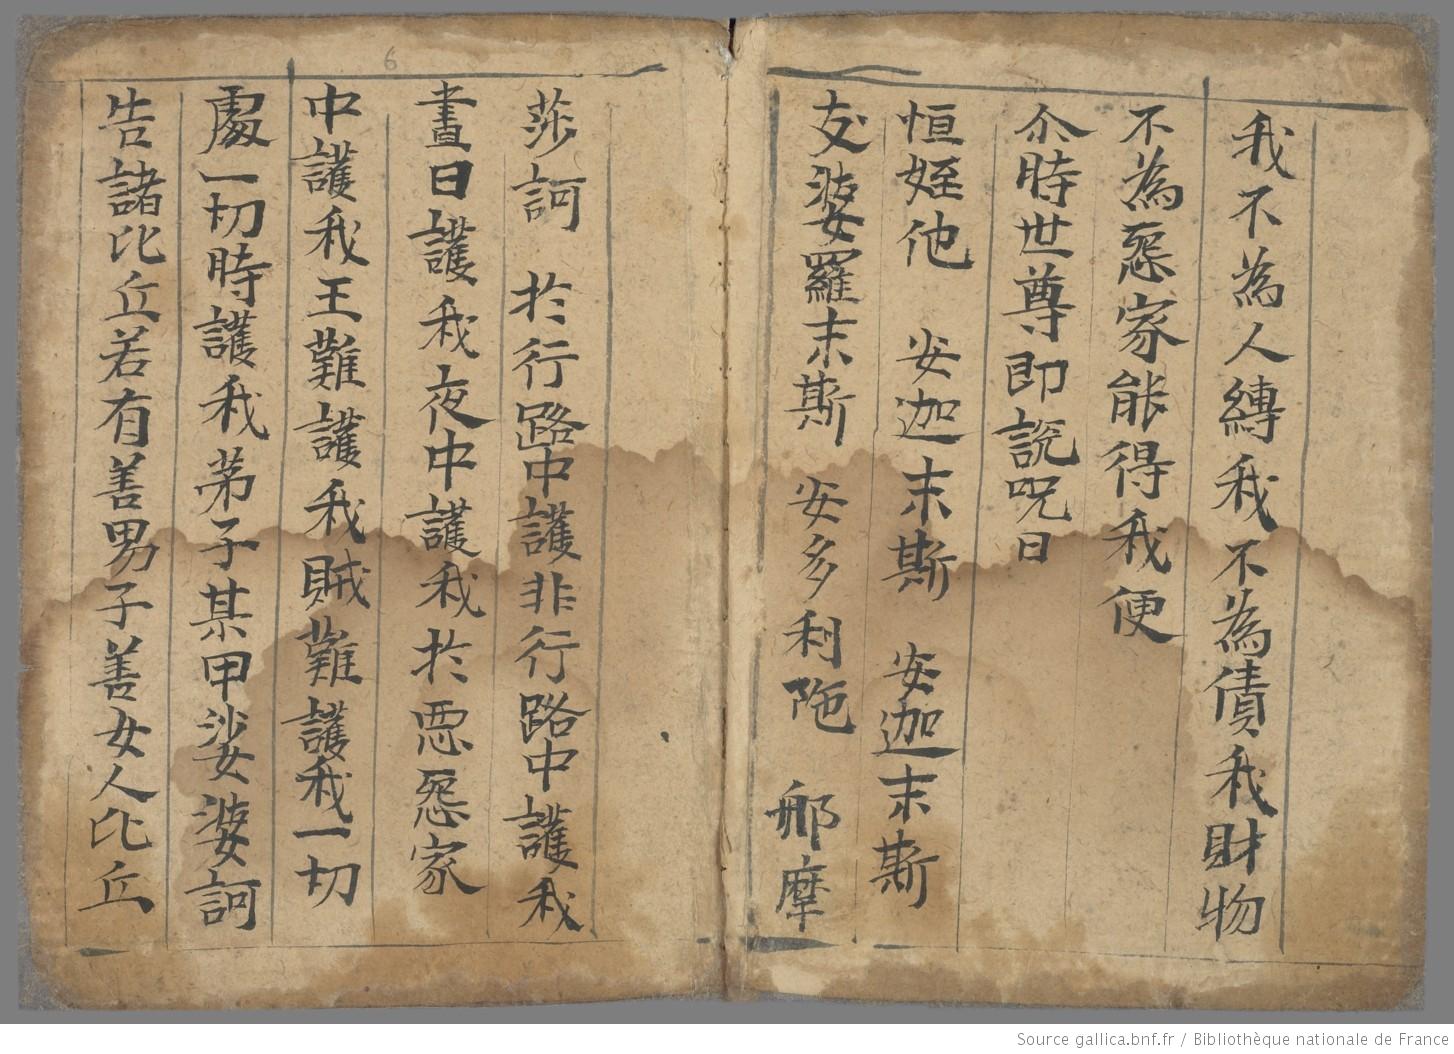 我不為人縛我不為債我財物
不為惡家能得我便
尒時世尊即說呪曰
恒姪他 安迦末斯 安迦末斯
支婆羅末斯 安多利陁 那摩
莎訶 扵行路中護非行路中護我
晝日護我夜中護我扵惡惡家
中護我王難護我賊難護我一切
處一切時護我弟子某甲娑婆訶
告諸比丘若有善男子善女人比丘
6
Source gallica.bnf.fr / Bibliothèque nationale de France